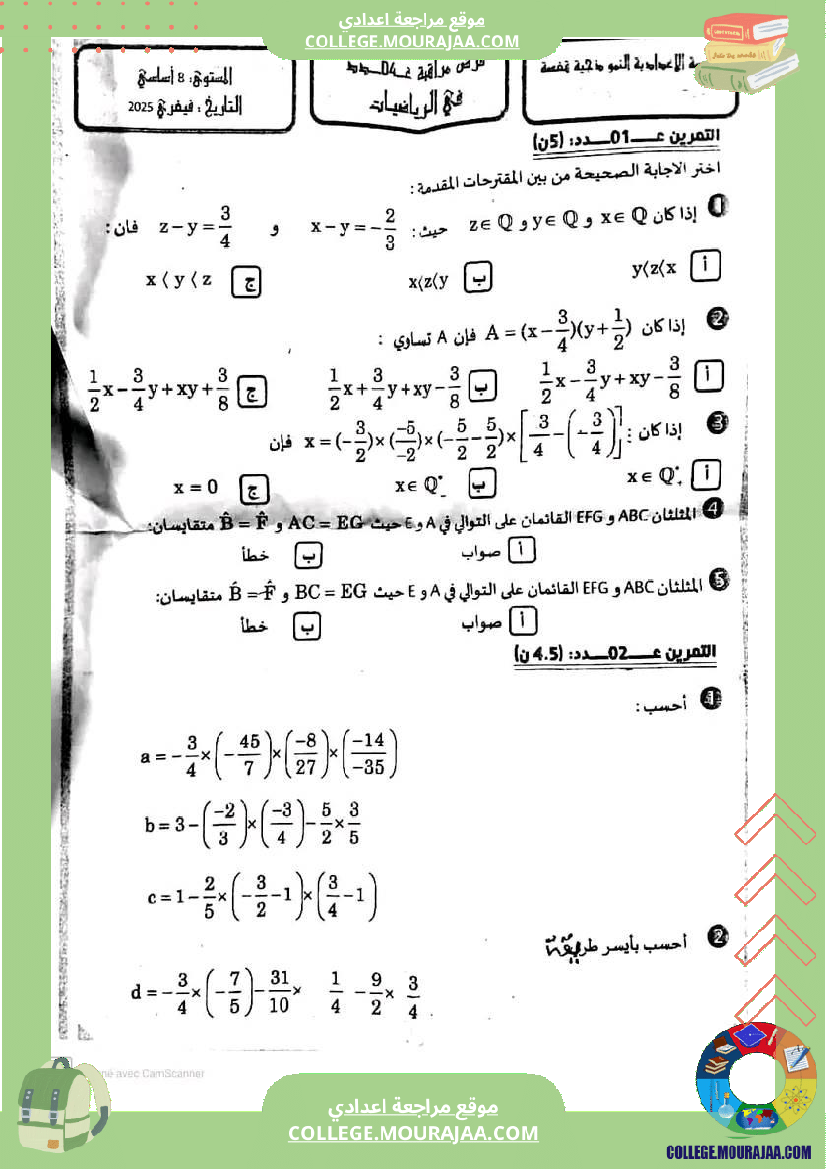 موقع مراجعة اعدادي
COLLEGE.MOURAJAA.COM
الإعدادية النموذجية بقفصة
فرض مراقبة عـ04ـدد
في الرياضيات
المستوى: 8 أساسي
التاريخ : فيفري 2025
التمرين عـــ01ــدد: (5ن)
اختر الاجابة الصحيحة من بين المقترحات المقدمة :
1 إذا كان x∈ℚ و y∈ℚ و z∈ℚ حيث: x−y=−2/3 و z−y=3/4 فان:
أ y⟨z⟨x ب x⟨z⟨y ج x⟨y⟨z
2 إذا كان A=(x−3/4)(y+1/2) فإن A تساوي :
أ 1/2x−3/4y+xy−3/8 ب 1/2x+3/4y+xy−3/8 ج 1/2x−3/4y+xy+3/8
3 إذا كان : x=(−3/2)×(−5/−2)×(−5/2−5/2)×[3/4−(−3/4)] فإن
أ x∈ℚ*₊ ب x∈ℚ*₋ ج x=0
4 المثلثان ABC و EFG القائمان على التوالي في A و E حيث AC=EG و B̂=F̂ متقايسان:
أ صواب ب خطأ
5 المثلثان ABC و EFG القائمان على التوالي في A و E حيث BC=EG و B̂=F̂ متقايسان:
أ صواب ب خطأ
التمرين عـــ02ــدد: (4.5 ن)
1 أحسب :
a=−3/4×(−45/7)×(−8/27)×(−14/−35)
b=3−(−2/3)×(−3/4)−5/2×3/5
c=1−2/5×(−3/2−1)×(3/4−1)
2 أحسب بأيسر طريقة
d=−3/4×(−7/5)−31/10× 1/4 −9/2× 3/4
né avec CamScanner
موقع مراجعة اعدادي
COLLEGE.MOURAJAA.COM
COLLEGE.MOURAJAA.COM